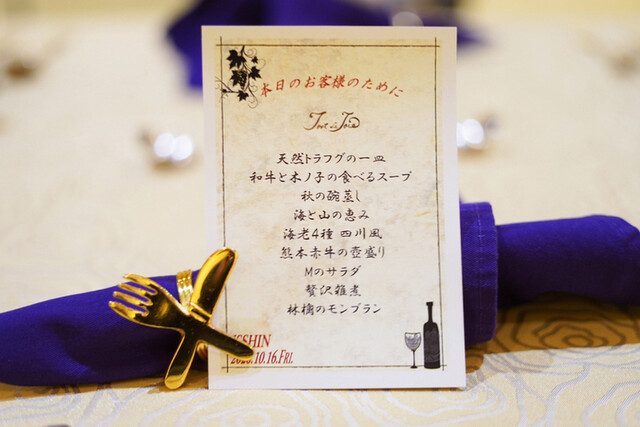 本日のお客様のために
天然トラフグの一皿
和牛と木ノ子の食べるスープ
秋の碗蒸し
海と山の恵み
海老4種 四川風
熊本赤牛の壺盛り
Mのサラダ
贅沢雑煮
林檎のモンブラン
ISSHIN
10.16.Fri.